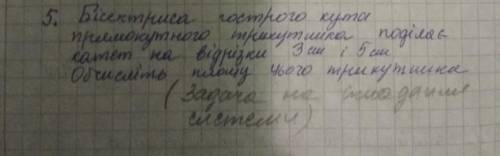 5. Бісектриса гострого кута
прямокутного трикутника поділяє
катет на відрізки 3 см і 5 см
Обчисліть площу цього трикутника
(Задача на складання
системи)